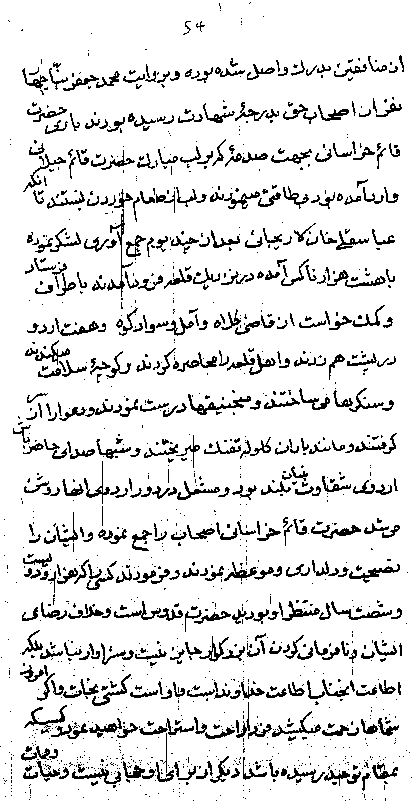 ۵۴
از منافقین بدرک واصل شده بوده و بروایت محمد جعفر
نفر از اصحاب حق بدرجهٔ شهادت رسیده بودند باری حضرت
قائم خراسانی بجهت صدمهٔ که بر لب مبارک حضرت قائم جیلانی
وارد آمده بود بی طاقتی مینمودند و لب از طعام خوردن بستند تا آنکه
عباسقلیخان لاریجانی بعد از چند یوم جمع آوری لشکر نموده
با هشت هزار ناکس آمده در نزدیک قلعه فرود آمدند باطراف فرستاد
و کمک خواست از قاضی کلاه و آمل و سواد کوه و هفت اردو
در پشت هم زدند و اهل قلعه را محاصره کردند و کوچهٔ سلامت میکندند
و سنگرها می ساختند و منجنیقها درست نمودند و دعوا را از سر
گرفتند و مانند باران گلوله تفنگ میریختند و شبها صدای حاضر باش
اردوی شقاوت بنیان بلند بود و مشعل در دور اردوی آنها روشن
میشد حضرت قائم خراسانی اصحاب را جمع نموده و ایشان را
نصیحت و دلداری و موعظه نمودند و فرمودند کسی را که هزار و دویست
و شصت سال منتظر او بودید حضرت قدوس است و خلاف رضای
ایشان و نافرمانی کردن آن بزرگوار جایز نیست و سزاوار نباشد بلکه
اطاعت آنجناب اطاعت خداوند است و او است کشتی نجات و اگر امروز
شماها زحمت میکشید فردا راحت و استراحت خواهید نمود و کسیکه
بمقام توحید رسیده باشد دیگر از برای او فنائی نیست و حیات و ممات